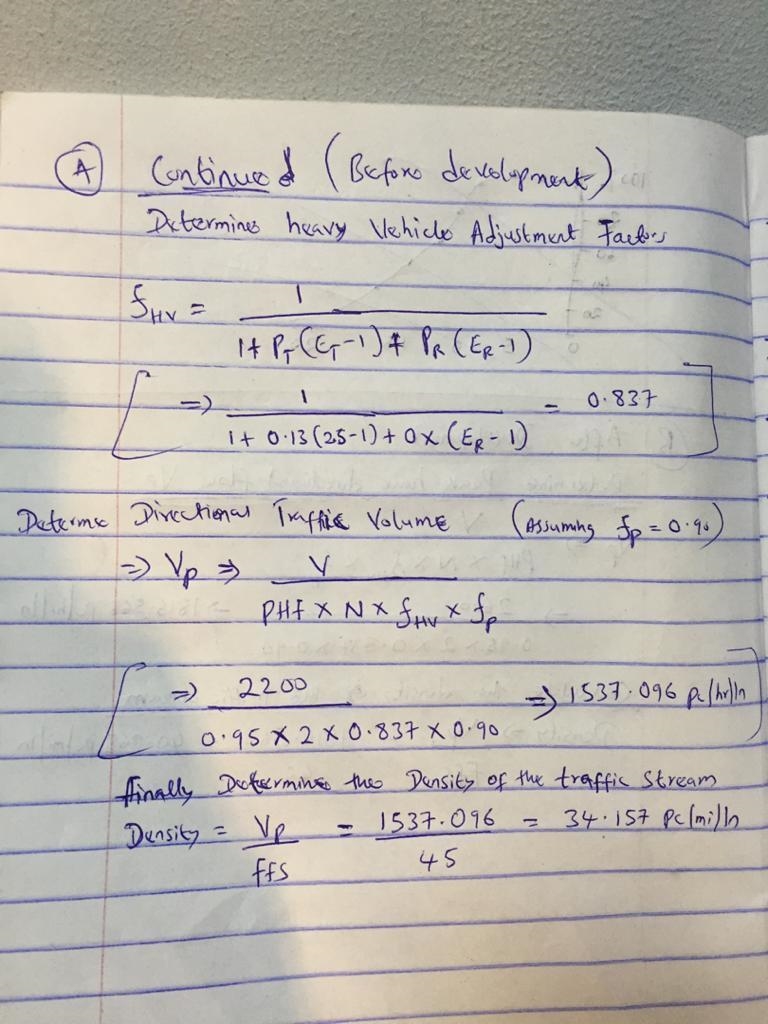 (A) Continued (Before development)
Determine heavy Vehicle Adjustment Factors
fHV = 1 / (1 + PT(ET-1) + PR(ER-1))
=> 1 / (1 + 0.13(25-1) + 0 x (ER-1)) = 0.837
Determe Directional Traffic Volume (Assuming fp = 0.90)
=> Vp => V / (PHF x N x fHV x fp)
=> 2200 / (0.95 x 2 x 0.837 x 0.90) => 1537.096 pc/hr/ln
finally Determine the Density of the traffic Stream
Density = Vp / ffs = 1537.096 / 45 = 34.157 pc/mi/ln